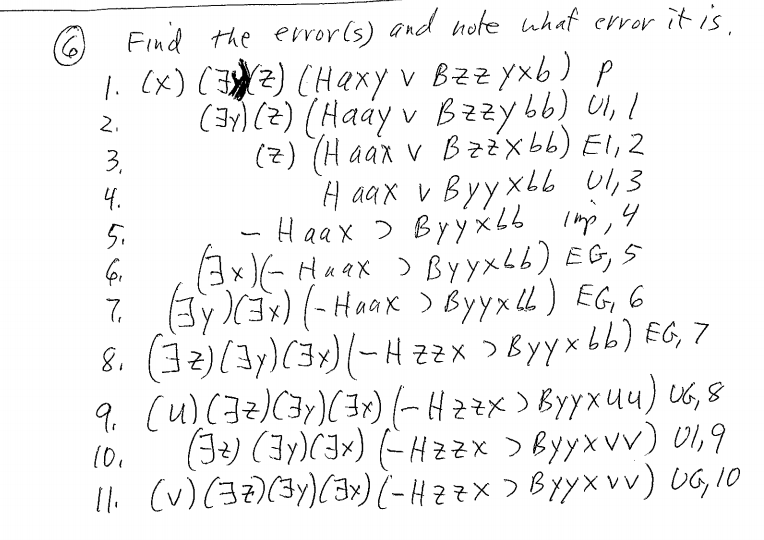 ⑥ Find the error(s) and note what error it is.
1. (x) (∃y)(z) (Haxy v Bzzyxb) P
2. (∃y)(z) (Haay v Bzzybb) UI, 1
3. (z) (Haax v Bzzxbb) EI, 2
4. Haax v Byyxbb UI, 3
5. - Haax ⊃ Byyxbb imp, 4
6. (∃x)(- Haax ⊃ Byyxbb) EG, 5
7. (∃y)(∃x) (-Haax ⊃ Byyxbb) EG, 6
8. (∃z)(∃y)(∃x)(-Hzzx ⊃ Byyxbb) EG, 7
9. (u)(∃z)(∃y)(∃x)(-Hzzx ⊃ Byyxuu) UG, 8
10. (∃z) (∃y)(∃x) (-Hzzx ⊃ Byyxvv) UI, 9
11. (v)(∃z)(∃y)(∃x)(-Hzzx ⊃ Byyxvv) UG, 10